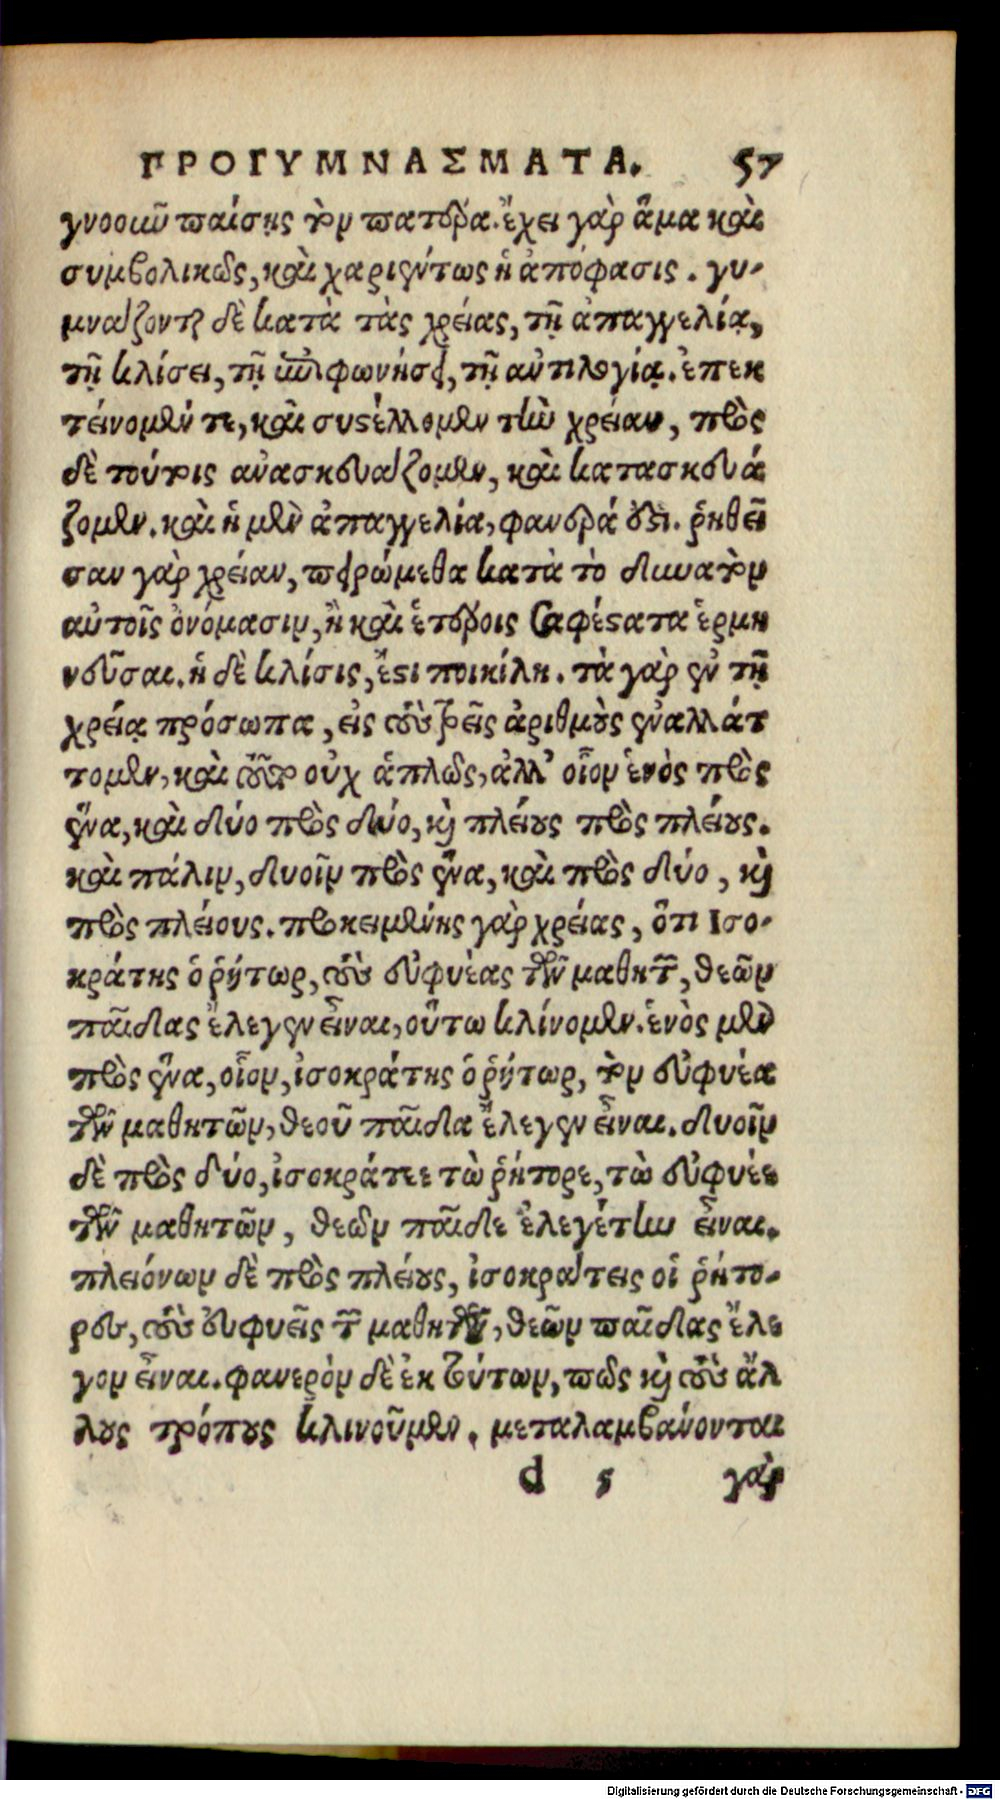 ΠΡΟΓΥΜΝΑΣΜΑΤΑ. 57
γνοοιῦ παίσῃς τὸν πατέρα. ἔχει γὰρ ἅμα καὶ
συμβολικῶς, καὶ χαριέντως ἡ ἀπόφασις. γυ-
μνάζονται δὲ κατὰ τὰς χρείας, τῇ ἀπαγγελίᾳ,
τῇ κλίσει, τῇ ἐπιφωνήσει, τῇ ἀντιλογίᾳ. ἐπεκ
τείνομέν τε, καὶ συστέλλομεν τὴν χρείαν, πρὸς
δὲ τούτοις ἀνασκευάζομεν, καὶ κατασκευά
ζομεν. καὶ ἡ μὲν ἀπαγγελία, φανερά ἐστι. ῥηθεῖ
σαν γὰρ χρείαν, πειρώμεθα κατὰ τὸ δυνατὸν
αὐτοῖς ὀνόμασιν, ἢ καὶ ἑτέροις σαφέστατα ἑρμη
νεῦσαι. ἡ δὲ κλίσις, ἔστι ποικίλη. τὰ γὰρ ἐν τῇ
χρείᾳ πρόσωπα, εἰς τοὺς τρεῖς ἀριθμοὺς ἐναλλάτ
τομεν, καὶ τοῦτο οὐχ ἁπλῶς, ἀλλ' οἷον ἑνὸς πρὸς
ἕνα, καὶ δύο πρὸς δύο, καὶ πλείους πρὸς πλείους.
καὶ πάλιν, δυοῖν πρὸς ἕνα, καὶ πρὸς δύο, καὶ
πρὸς πλείους. προκειμένης γὰρ χρείας, ὅτι Ισο-
κράτης ὁ ῥήτωρ, τοὺς εὐφυέας τῶν μαθητῶν, θεῶν
παῖδας ἔλεγεν εἶναι, οὕτω κλίνομεν. ἑνὸς μὲν
πρὸς ἕνα, οἷον, ἰσοκράτης ὁ ῥήτωρ, τὸν εὐφυέα
τῶν μαθητῶν, θεοῦ παῖδα ἔλεγεν εἶναι. δυοῖν
δὲ πρὸς δύο, ἰσοκράτεε τὼ ῥήτορε, τὼ εὐφυέε
τῶν μαθητῶν, θεῶν παῖδε ἐλεγέτην εἶναι.
πλειόνων δὲ πρὸς πλείους, ἰσοκράτεις οἱ ῥήτο-
ρες, τοὺς εὐφυεῖς τῶν μαθητῶν, θεῶν παῖδας ἔλε
γον εἶναι. φανερὸν δὲ ἐκ τούτων, πῶς καὶ τοὺς ἄλ
λους τρόπους κλινοῦμεν. μεταλαμβάνονται
d 5 γὰρ
Digitalisierung gefördert durch die Deutsche Forschungsgemeinschaft - DFG